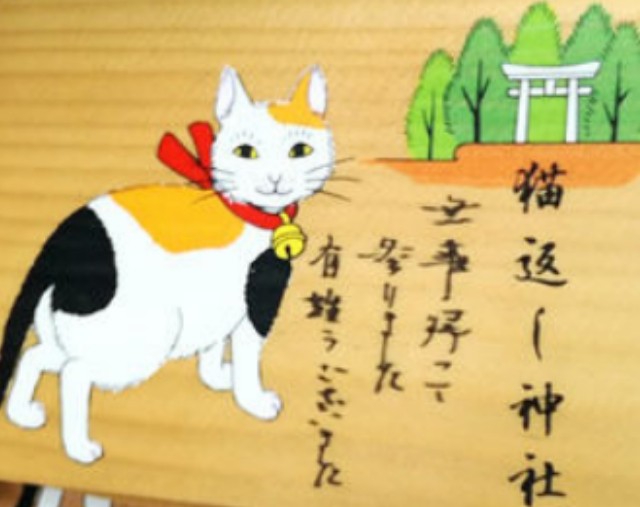 猫返し神社
無事帰って
参りました
有難うございました